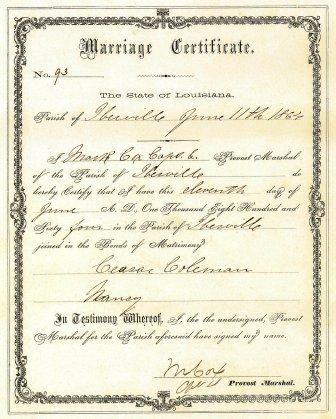 Marriage Certificate.
No. 93
The State of Louisiana.
Parish of Iberville June 11th 1864
I Mark Provost Marshal
of the Parish of Iberville do
hereby Certify that I have this eleventh day of
June A. D., One Thousand Eight Hundred and
Sixty four in the Parish of Iberville
joined in the Bonds of Matrimony
Ceasar Coleman
Nancy
In Testimony Whereof, I, the the undersigned, Provost
Marshal for the Parish aforesaid have signed my name.
Provost Marshal.